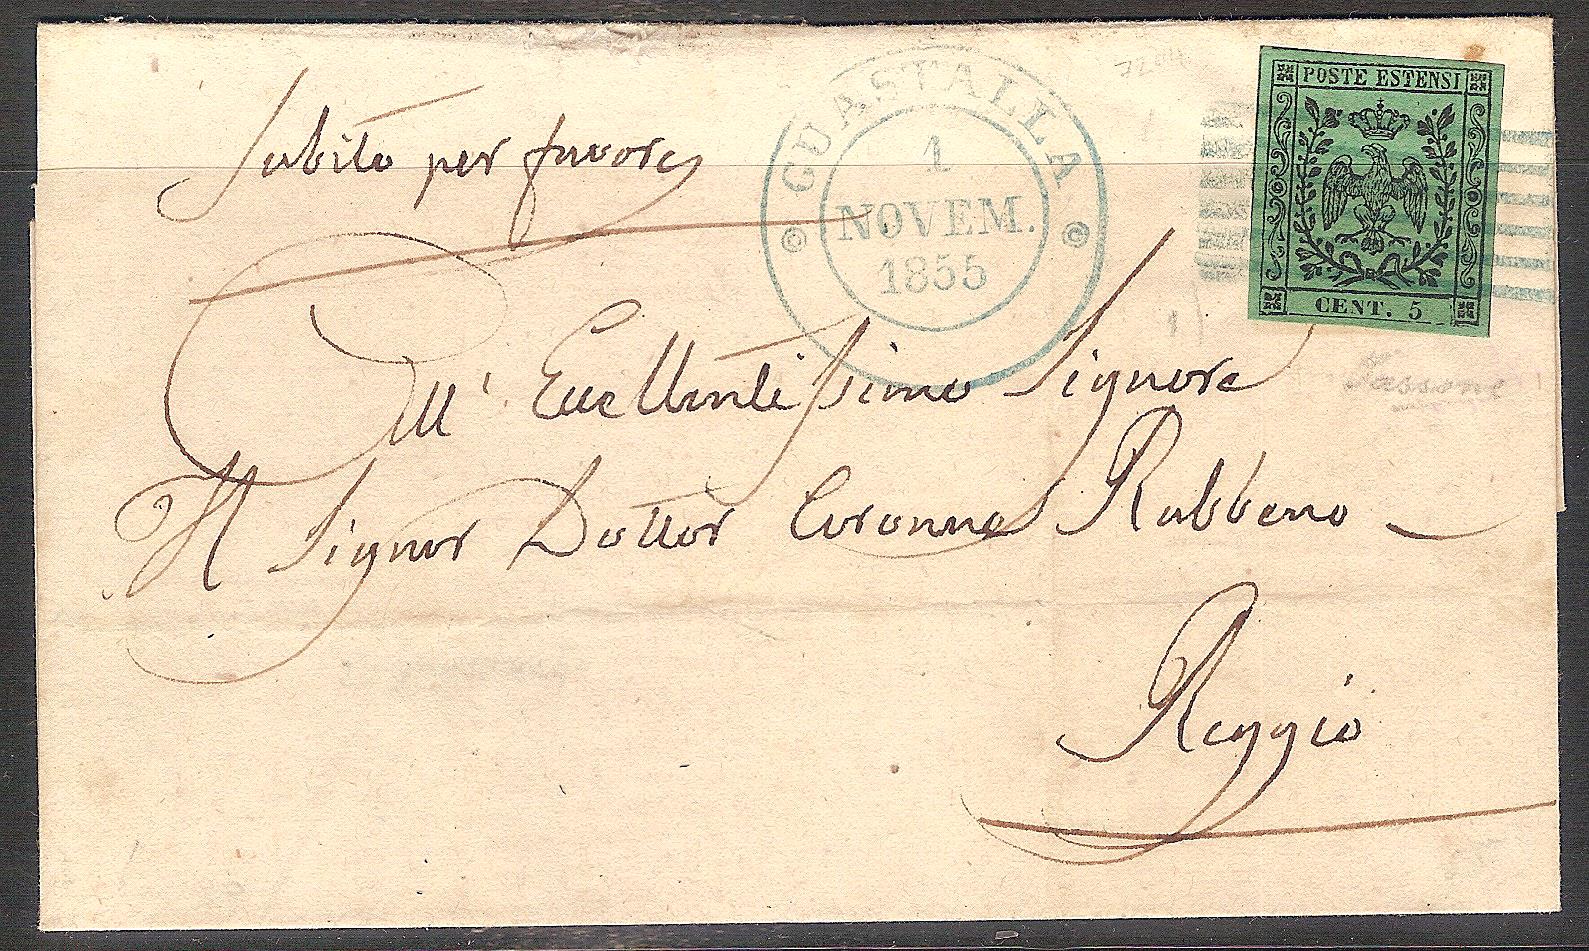 Subito per favore
GUASTALLA
1
NOVEM.
1855
POSTE ESTENSI
CENT. 5
All' Eccellentissimo Signore
Il Signor Dottor Rabbeno
Reggio